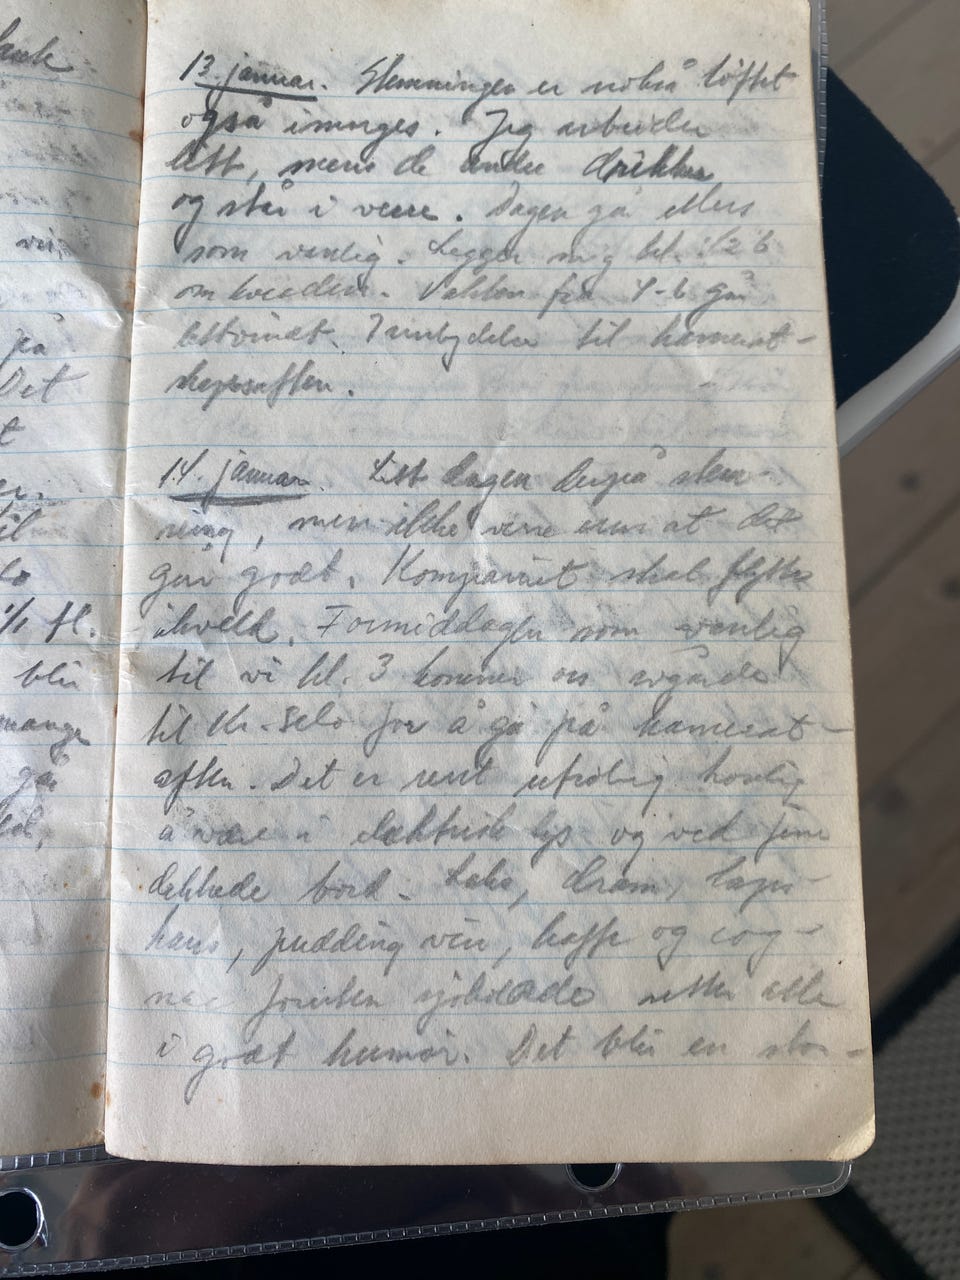 lands
13. januar. Stemningen er nokså løftet
også imorges. Jeg arbeider
litt, mens de andre drikker
og står i veien. Dagen går ellers
som vanlig. Legger mig kl. 1/2 6
om kvelden. Vakten fra 4-6 går
lettvindt. Innbydelse til kamerat-
skapsaften.
på
Det
14. januar. Litt dagen derpå stem-
ning, men ikke verre enn at det
går godt. Kompaniet skal flytte
ikveld. Formiddagen som vanlig
til
1/1 fl.
til vi kl. 3 kommer oss avgårde
blir
til Kr. Selo for å gå på kamerat-
mange
aften. Det er rent utrolig koselig
går
å være i elektrisk lys og ved fine
dekkede bord. Laks, dram, kaps-
hare, pudding vin, kaffe og cog-
nac foruten sjokolade setter alle
i godt humør. Det blir en stor-